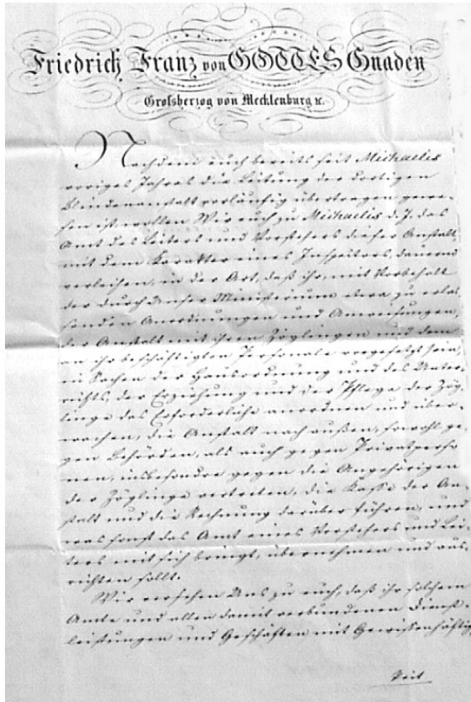 Friedrich Franz von GOTTES Gnaden
Großherzog von Mecklenburg ꝛc.
Nachdem euch bereits seit Michaelis
vorigen Jahres die Leitung der dortigen
Blindenanstalt vorläufig übertragen gewe-
sen ist, wollen Wir euch zu Michaelis d. J. das
Amt des Leiters und Vorstehers dieser Anstalt
mit dem Karakter eines Inspektors, dauernd
verleihen, in der Art, daß ihr, mit Vorbehalt
der durch Unser Ministerium etwa zu erlas-
senden Anordnungen und Anweisungen,
der Anstalt mit ihren Zöglingen und dem
an ihr beschäftigten Personale vorgesetzt sein,
in Sachen der Hausordnung und des Unter-
richts, der Erziehung und der Pflege der Zög-
linge das Erforderliche anordnen und über-
wachen, die Anstalt nach außen, sowohl ge-
gen Behörden, als auch gegen Privatperso-
nen, insbesondre gegen die Angehörigen
der Zöglinge vertreten, die Kasse der An-
stalt und die Rechnung darüber führen, und
was sonst das Amt eines Vorstehers und Lei-
ters mit sich bringt, übernehmen und aus-
richten sollt.
Wir versehen Uns zu euch, daß ihr solchem
Amte und allen damit verbundenen Dienst-
leistungen und Geschäften mit Gewissenhaftig